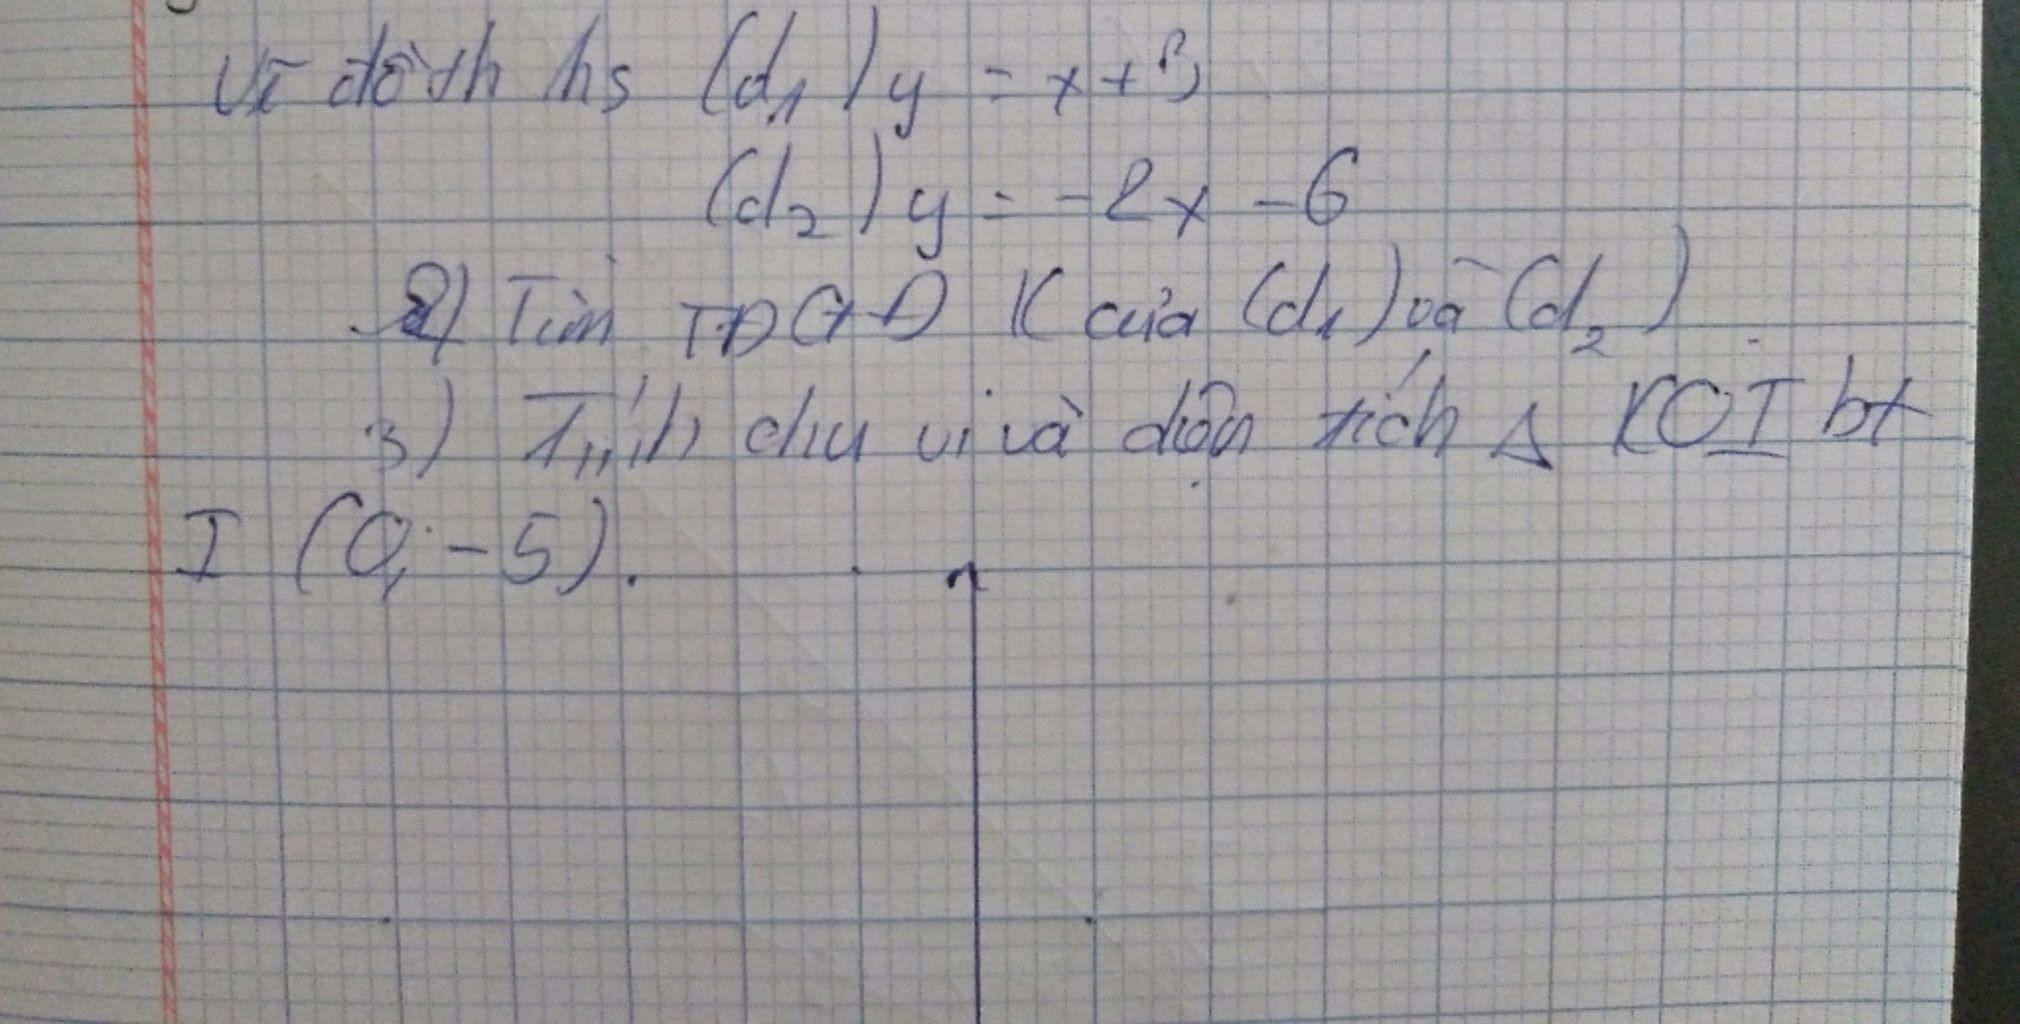 Vẽ đồ th hs (d1) y = x + 3
(d2) y = -2x - 6
2) Tìm TĐGĐ K của (d1) và (d2)
3) Tính chu vi và diện tích Δ KOI bt
I (0; -5).